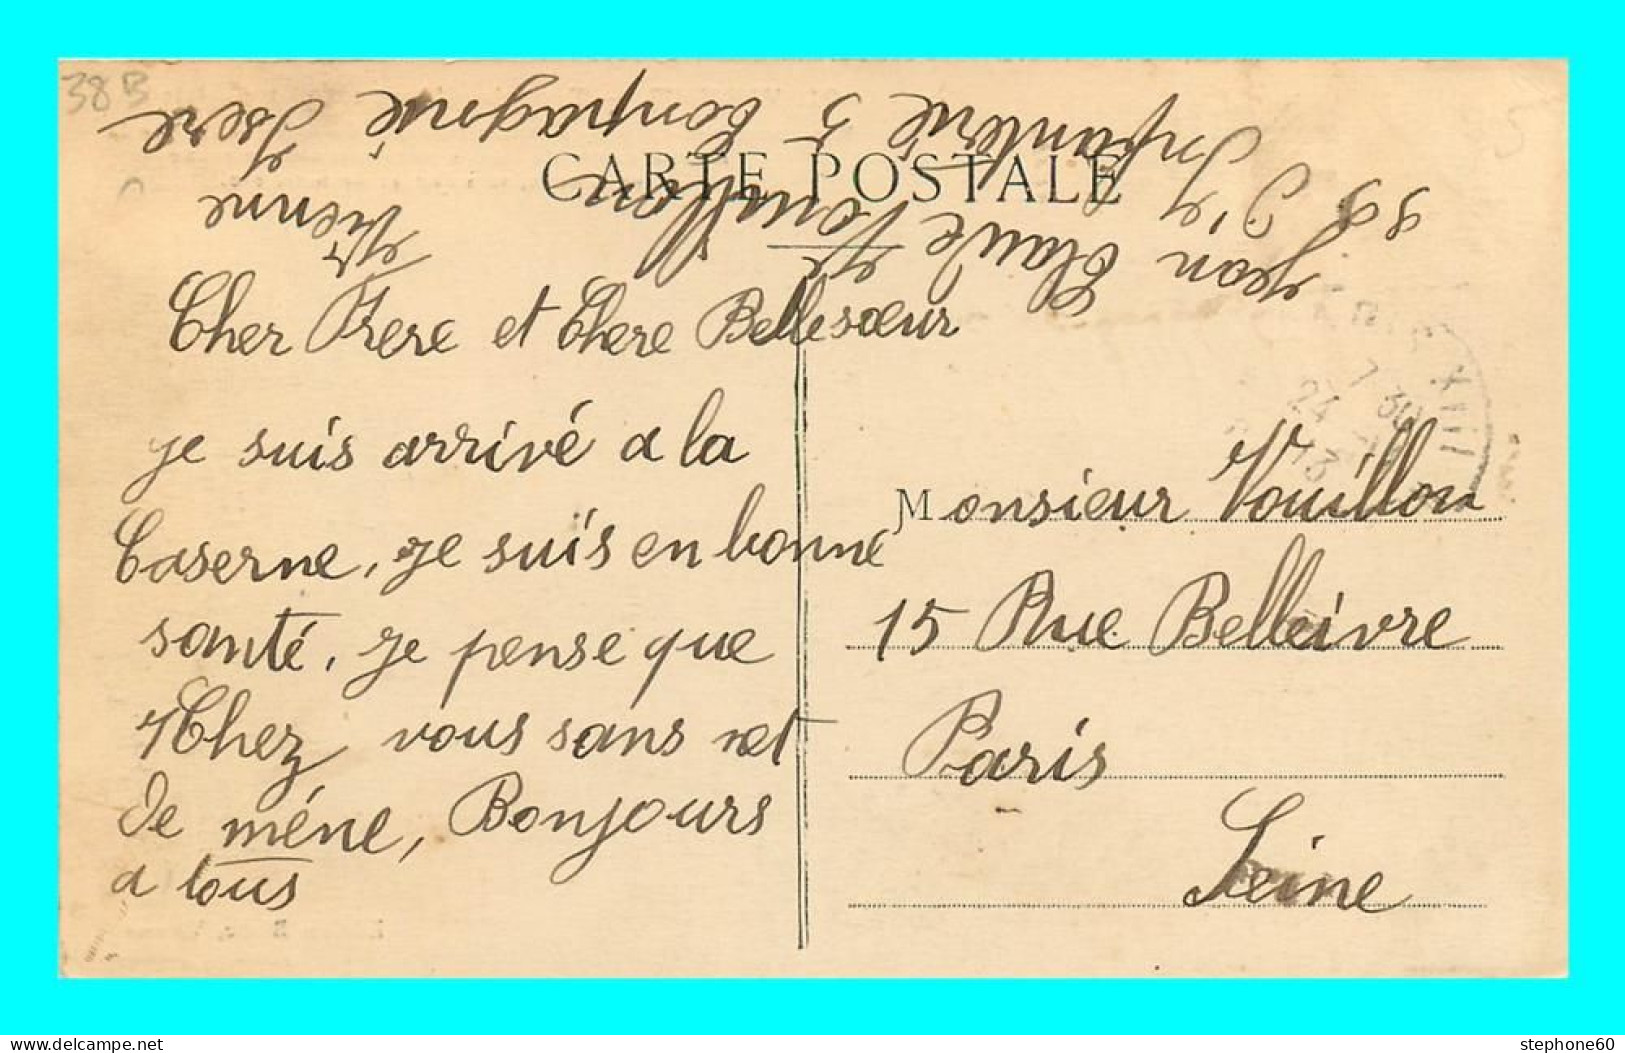 38 B
5
CARTE POSTALE
Jean Claude Vouillon
99 Infanterie 5 Compagnie
Vienne Isere
Cher Frere et Chere Bellesœur
je suis arrivé a la
Caserne, je suis en bonne
santé, je pense que
Chez vous sans est
de méne, Bonjours
a tous
Monsieur Vouillon
15 Rue Belleivre
Paris
Seine
XIII
7 30
24
stephone60